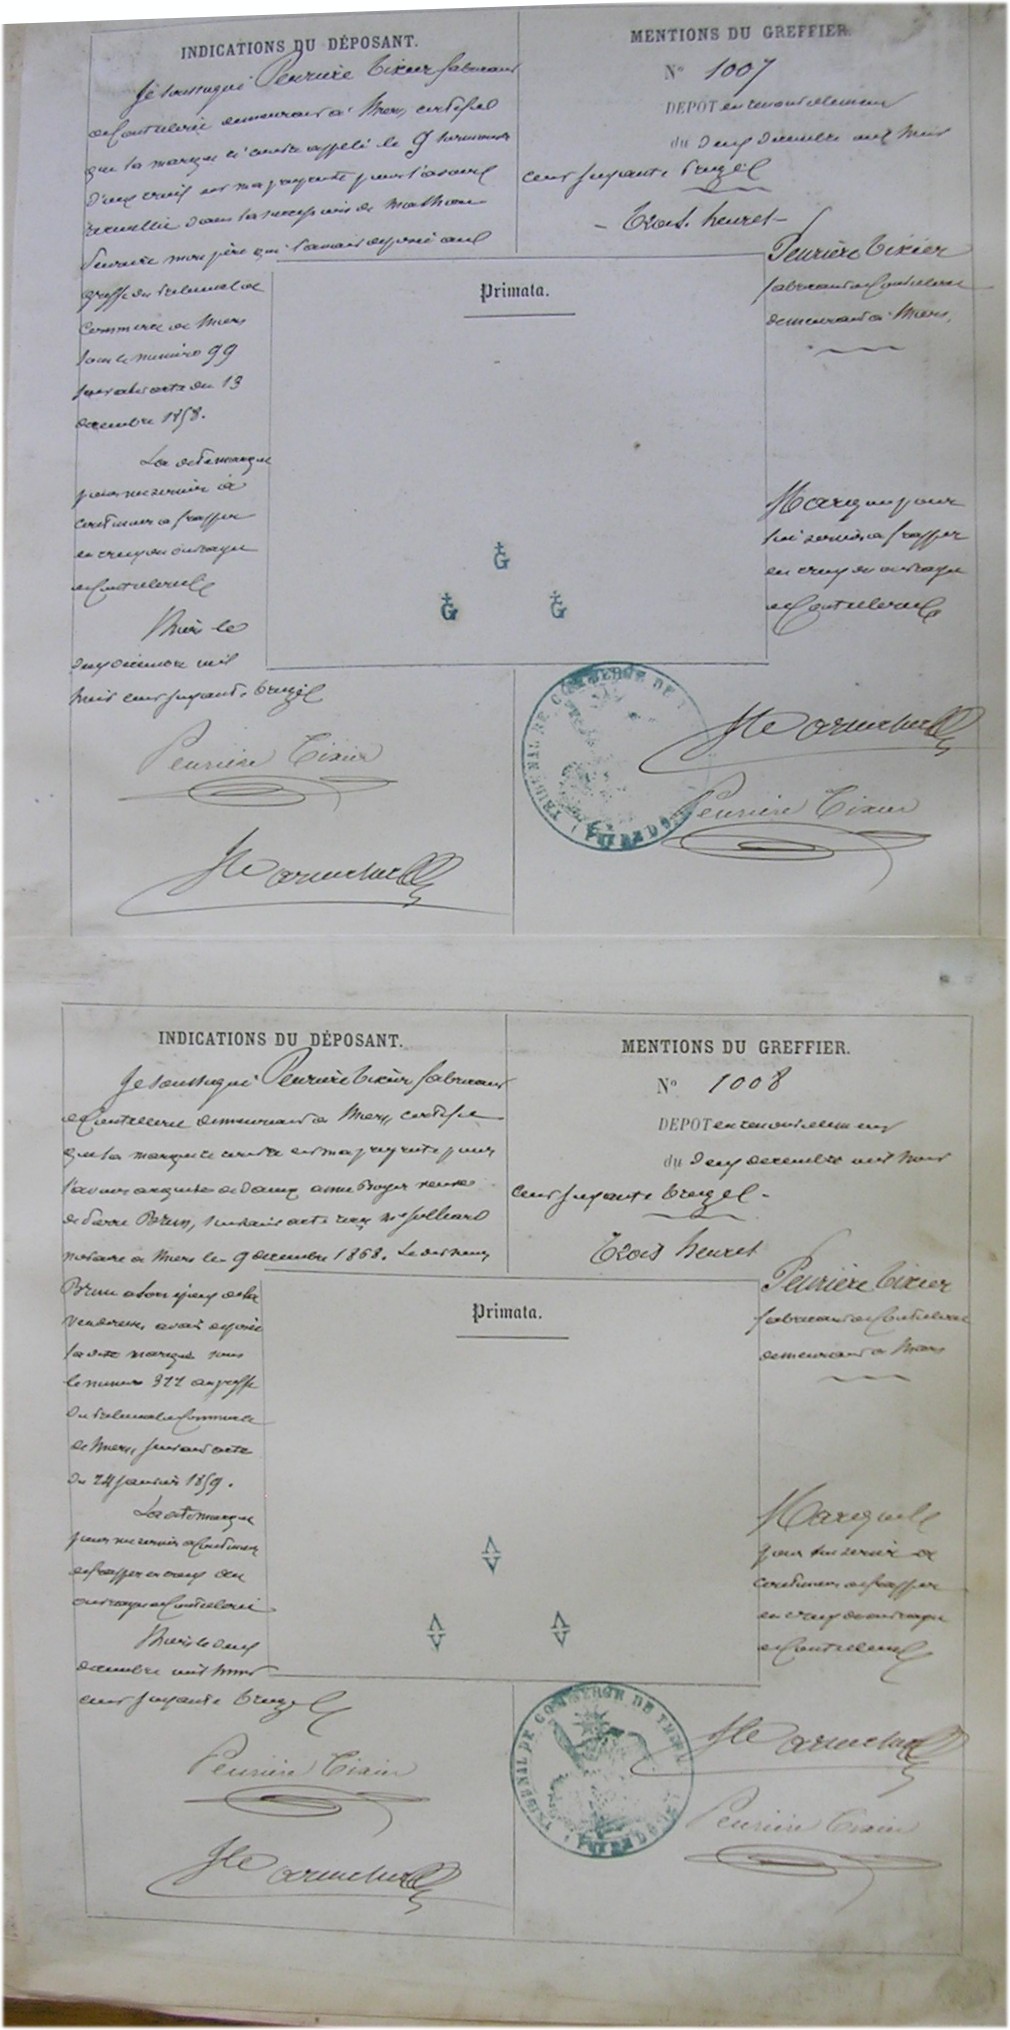 INDICATIONS DU DÉPOSANT.
Je soussigné Peurière Tixier fabricant
de Coutellerie demeurant à Thiers, certifie
que la marque ci contre appelé le G surmonté
d'une croix est ma propriété pour l'avoir
recueillie dans la succession de
Peurière mon père qui l'avait déposée au
greffe du Tribunal de
Commerce de Thiers
sous le numéro 99
suivant acte du 13
décembre 1858.
La dite marque
pour me servir à
continuer à frapper
en creux des ouvrages
de Coutellerie
Thiers le
deux décembre mil
huit cent soixante treize
Peurière Tixier
MENTIONS DU GREFFIER.
N° 1007
DÉPOT en renouvellement
du deux décembre mil huit
cent soixante treize
Trois heures
Peurière Tixier
fabricant de Coutellerie
demeurant à Thiers.
Marque pour
lui servir à frapper
en creux des ouvrages
de Coutellerie
Primata.
G
G G
TRIBUNAL DE COMMERCE DE T
Peurière Tixier
INDICATIONS DU DÉPOSANT.
Je soussigné Peurière Tixier fabricant
de Coutellerie demeurant à Thiers, certifie
que la marque ci contre est ma propriété pour
l'avoir acquise de Dame Anne Royer veuve
de Pierre Brun, suivant acte reçu Me
notaire à Thiers le 9 décembre 1868. Le dit
Brun époux de la
venderesse avait déposé
la dite marque sous
le numéro 377 au greffe
du Tribunal de Commerce
de Thiers, suivant acte
du 24 janvier 1859.
La dite marque
pour me servir à continuer
de frapper en creux des
ouvrages de Coutellerie
Thiers le deux
décembre mil huit
cent soixante treize
Peurière Tixier
MENTIONS DU GREFFIER.
N° 1008
DÉPOT en renouvellement
du deux décembre mil huit
cent soixante treize
Trois heures
Peurière Tixier
fabricant de Coutellerie
demeurant à Thiers
Marque
pour lui servir à
continuer de frapper
en creux des ouvrages
de Coutellerie
Primata.
TRIBUNAL DE COMMERCE DE THIERS
Peurière Tixier